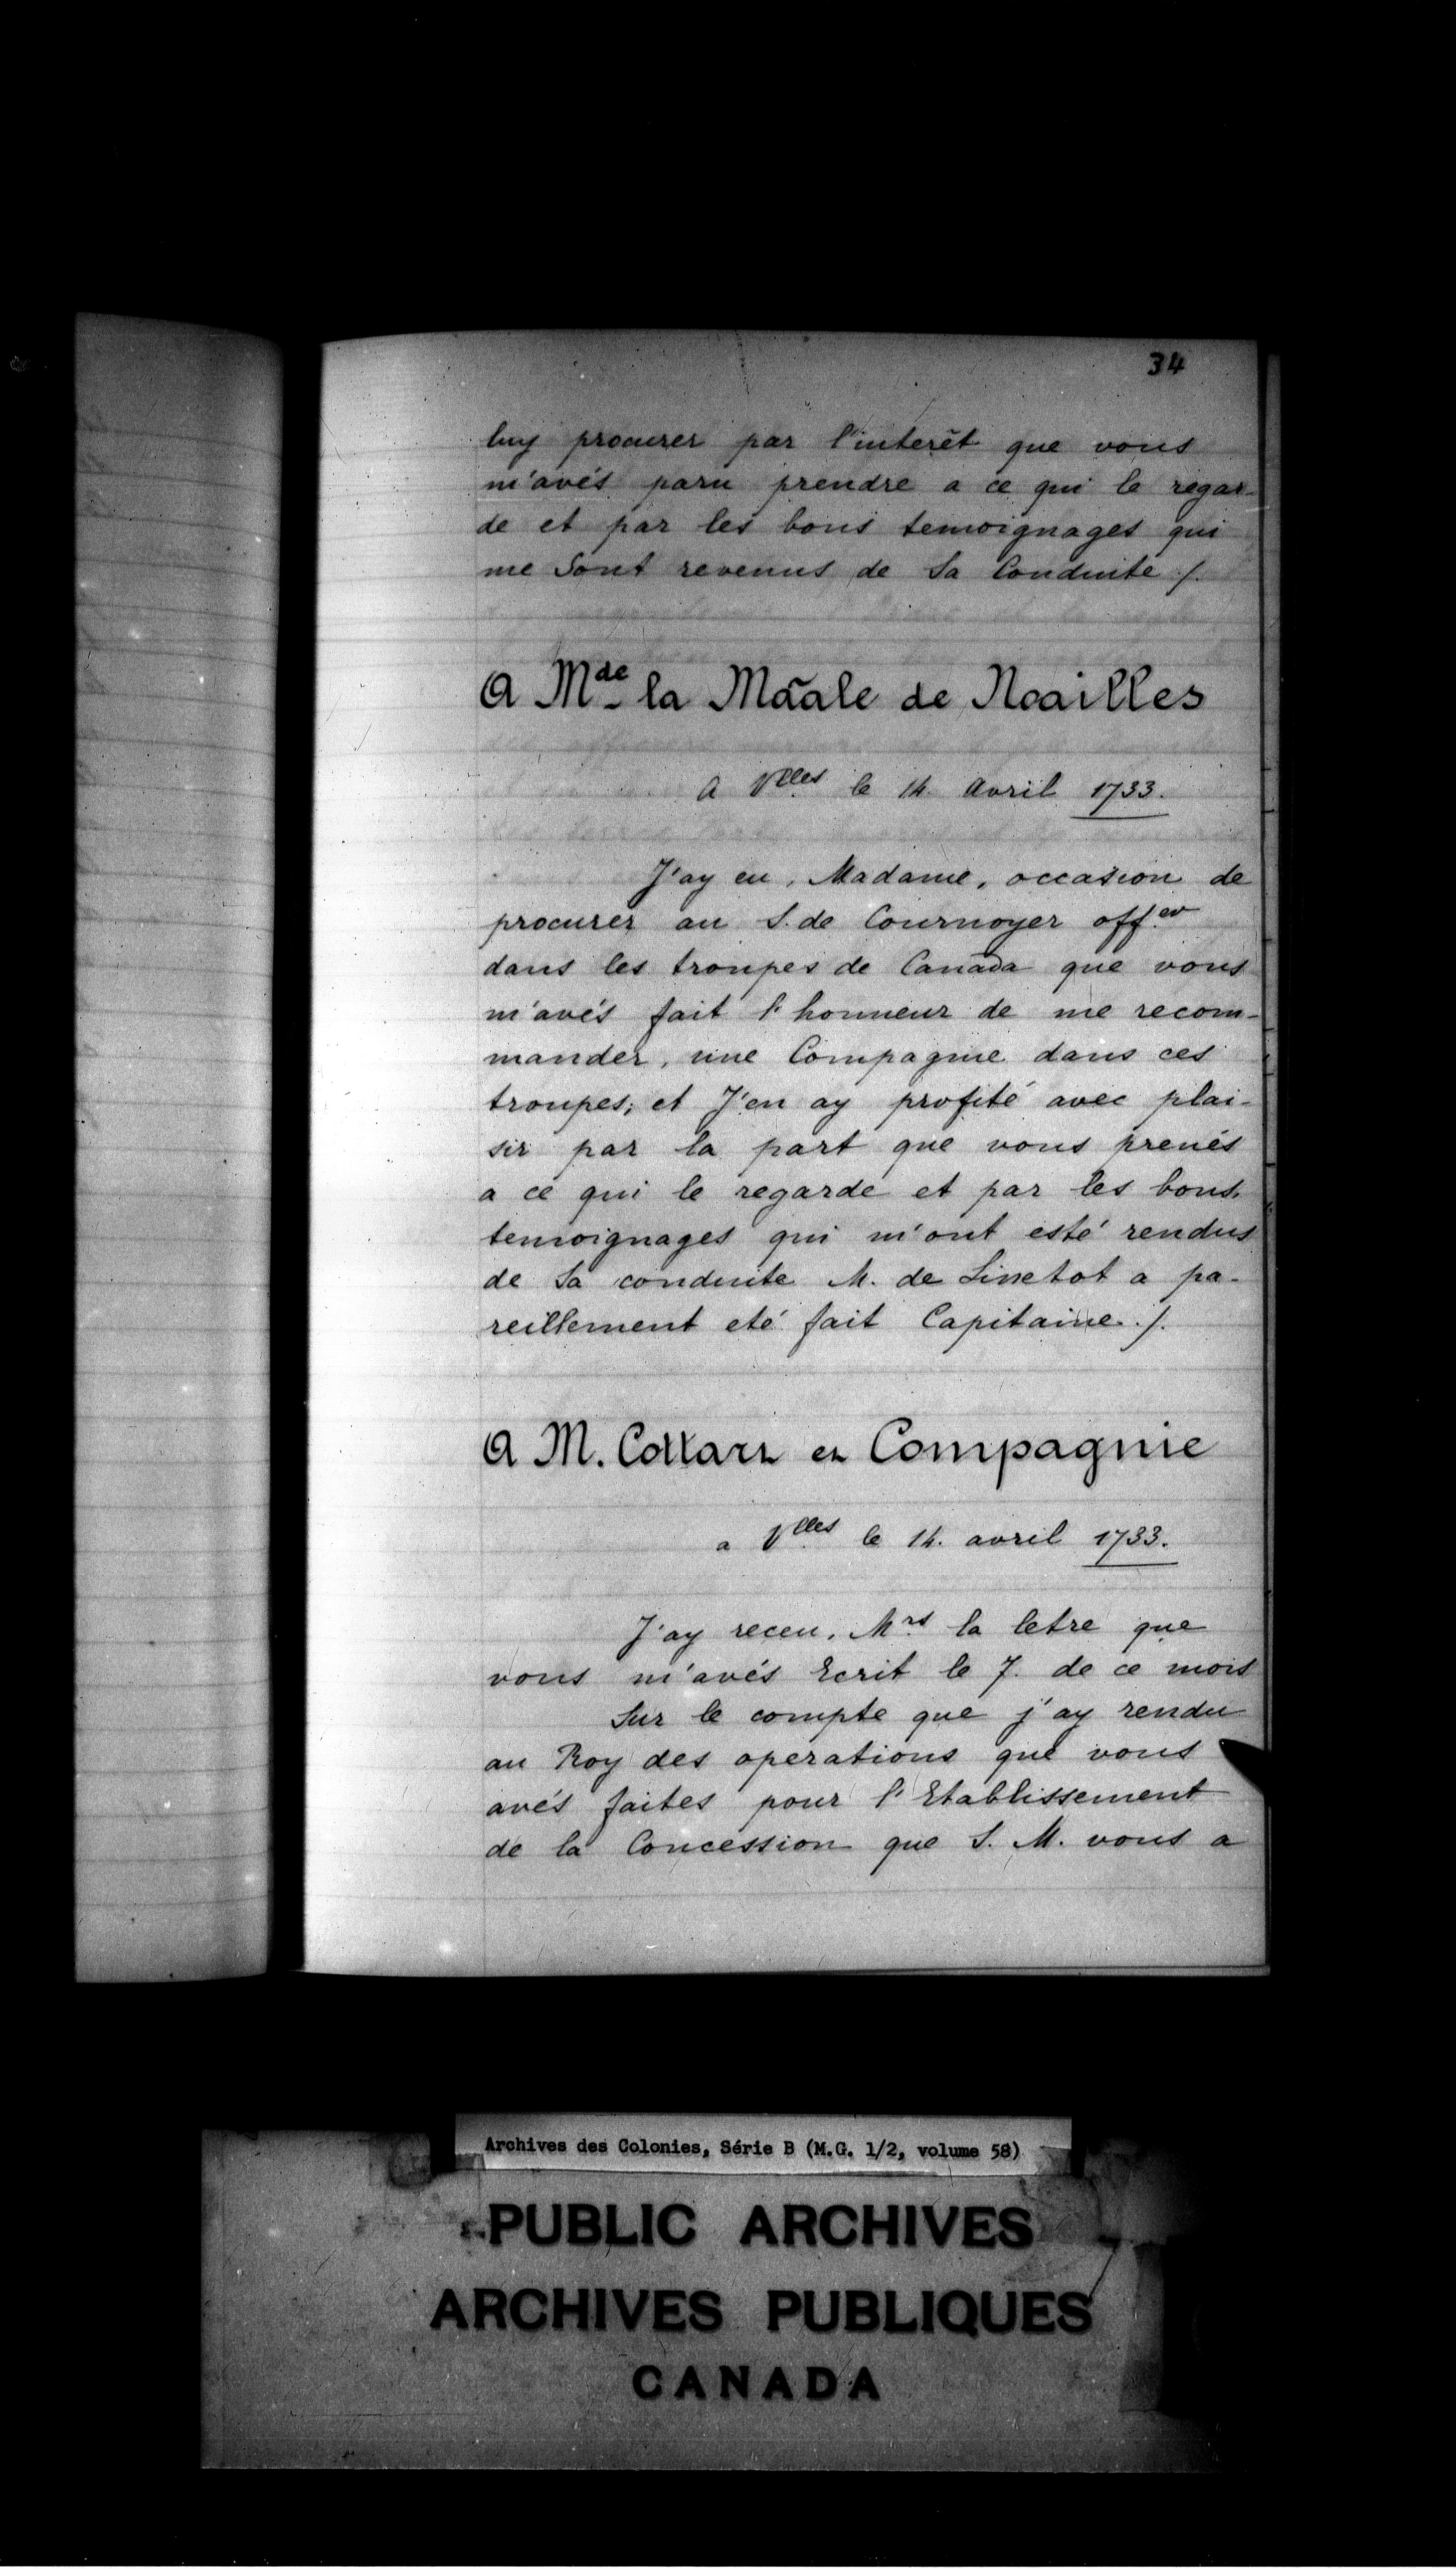 34
luy procurer par l'interêt que vous
m'avés paru prendre a ce qui le regar-
de et par les bons temoignages qui
me Sont revenus de Sa Conduite ./.
A Mde la Mãale de Noailles
A Vlles le 14. Avril 1733.
J'ay eu, Madame, occasion de
procurer au S. de Cournoyer offer
dans les troupes de Canada que vous
m'avés fait l'honneur de me recom-
mander, une Compagnie dans ces
troupes; et J'en ay profité avec plai-
sir par la part que vous prenés
a ce qui le regarde et par les bons
temoignages qui m'ont esté rendus
de Sa conduite M. de Linetot a pa-
reillement eté fait Capitaine ./.
A M. Cottart et Compagnie
a Vlles le 14. avril 1733.
J'ay receu, Mrs la letre que
vous m'avés Ecrit le 7. de ce mois
Sur le compte que j'ay rendu
au Roy des operations que vous
avés faites pour l'Etablissement
de la Concession que S. M. vous a
Archives des Colonies, Série B (M.G. 1/2, volume 58)
PUBLIC ARCHIVES
ARCHIVES PUBLIQUES
CANADA